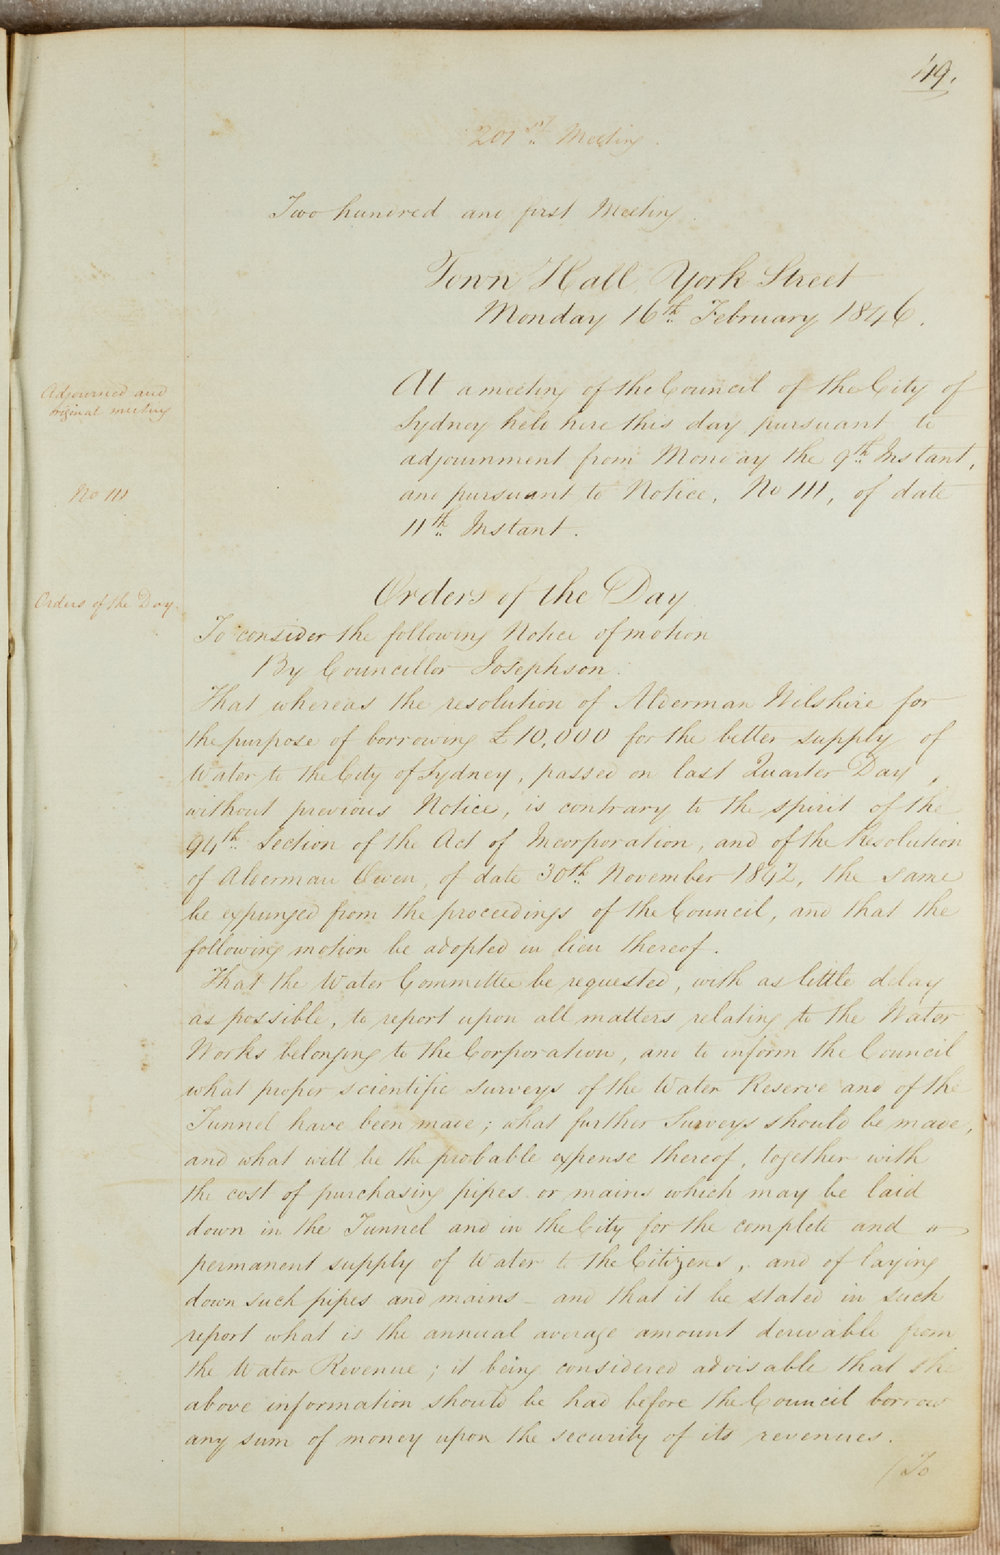 119.
201st. Meeting.
Two hundred and first Meeting.
Town Hall York Street
Monday 16th. February 1846.
Adjourned and
original meeting
At a meeting of the Council of the City of
Sydney held here this day pursuant to
adjournment from Monday the 9th. Instant,
No 111
and pursuant to Notice, No 111, of date
11th. Instant.
Orders of the Day
Orders of the Day.
To consider the following Notice of motion
By Councillor Josephson.
That whereas the resolution of Alderman Wilshire for
the purpose of borrowing £10,000 for the better supply of
Water to the City of Sydney, passed on last Quarter Day,
without previous Notice, is contrary to the spirit of the
94th. Section of the Act of Incorporation, and of the Resolution
of Alderman Owen, of date 30th. November 1842, the same
be expunged from the proceedings of the Council, and that the
following motion be adopted in lieu thereof.
That the Water Committee be requested, with as little delay
as possible, to report upon all matters relating to the Water
Works belonging to the Corporation, and to inform the Council
what proper scientific surveys of the Water Reserve and of the
Tunnel have been made; what further Surveys should be made,
and what will be the probable expense thereof, together with
the cost of purchasing pipes or mains which may be laid
down in the Tunnel and in the City for the complete and
permanent supply of Water to the Citizens, and of laying
down such pipes and mains - and that it be stated in such
report what is the annual average amount derivable from
the Water Revenue; it being considered advisable that the
above information should be had before the Council borrow
any sum of money upon the security of its revenues.
/To